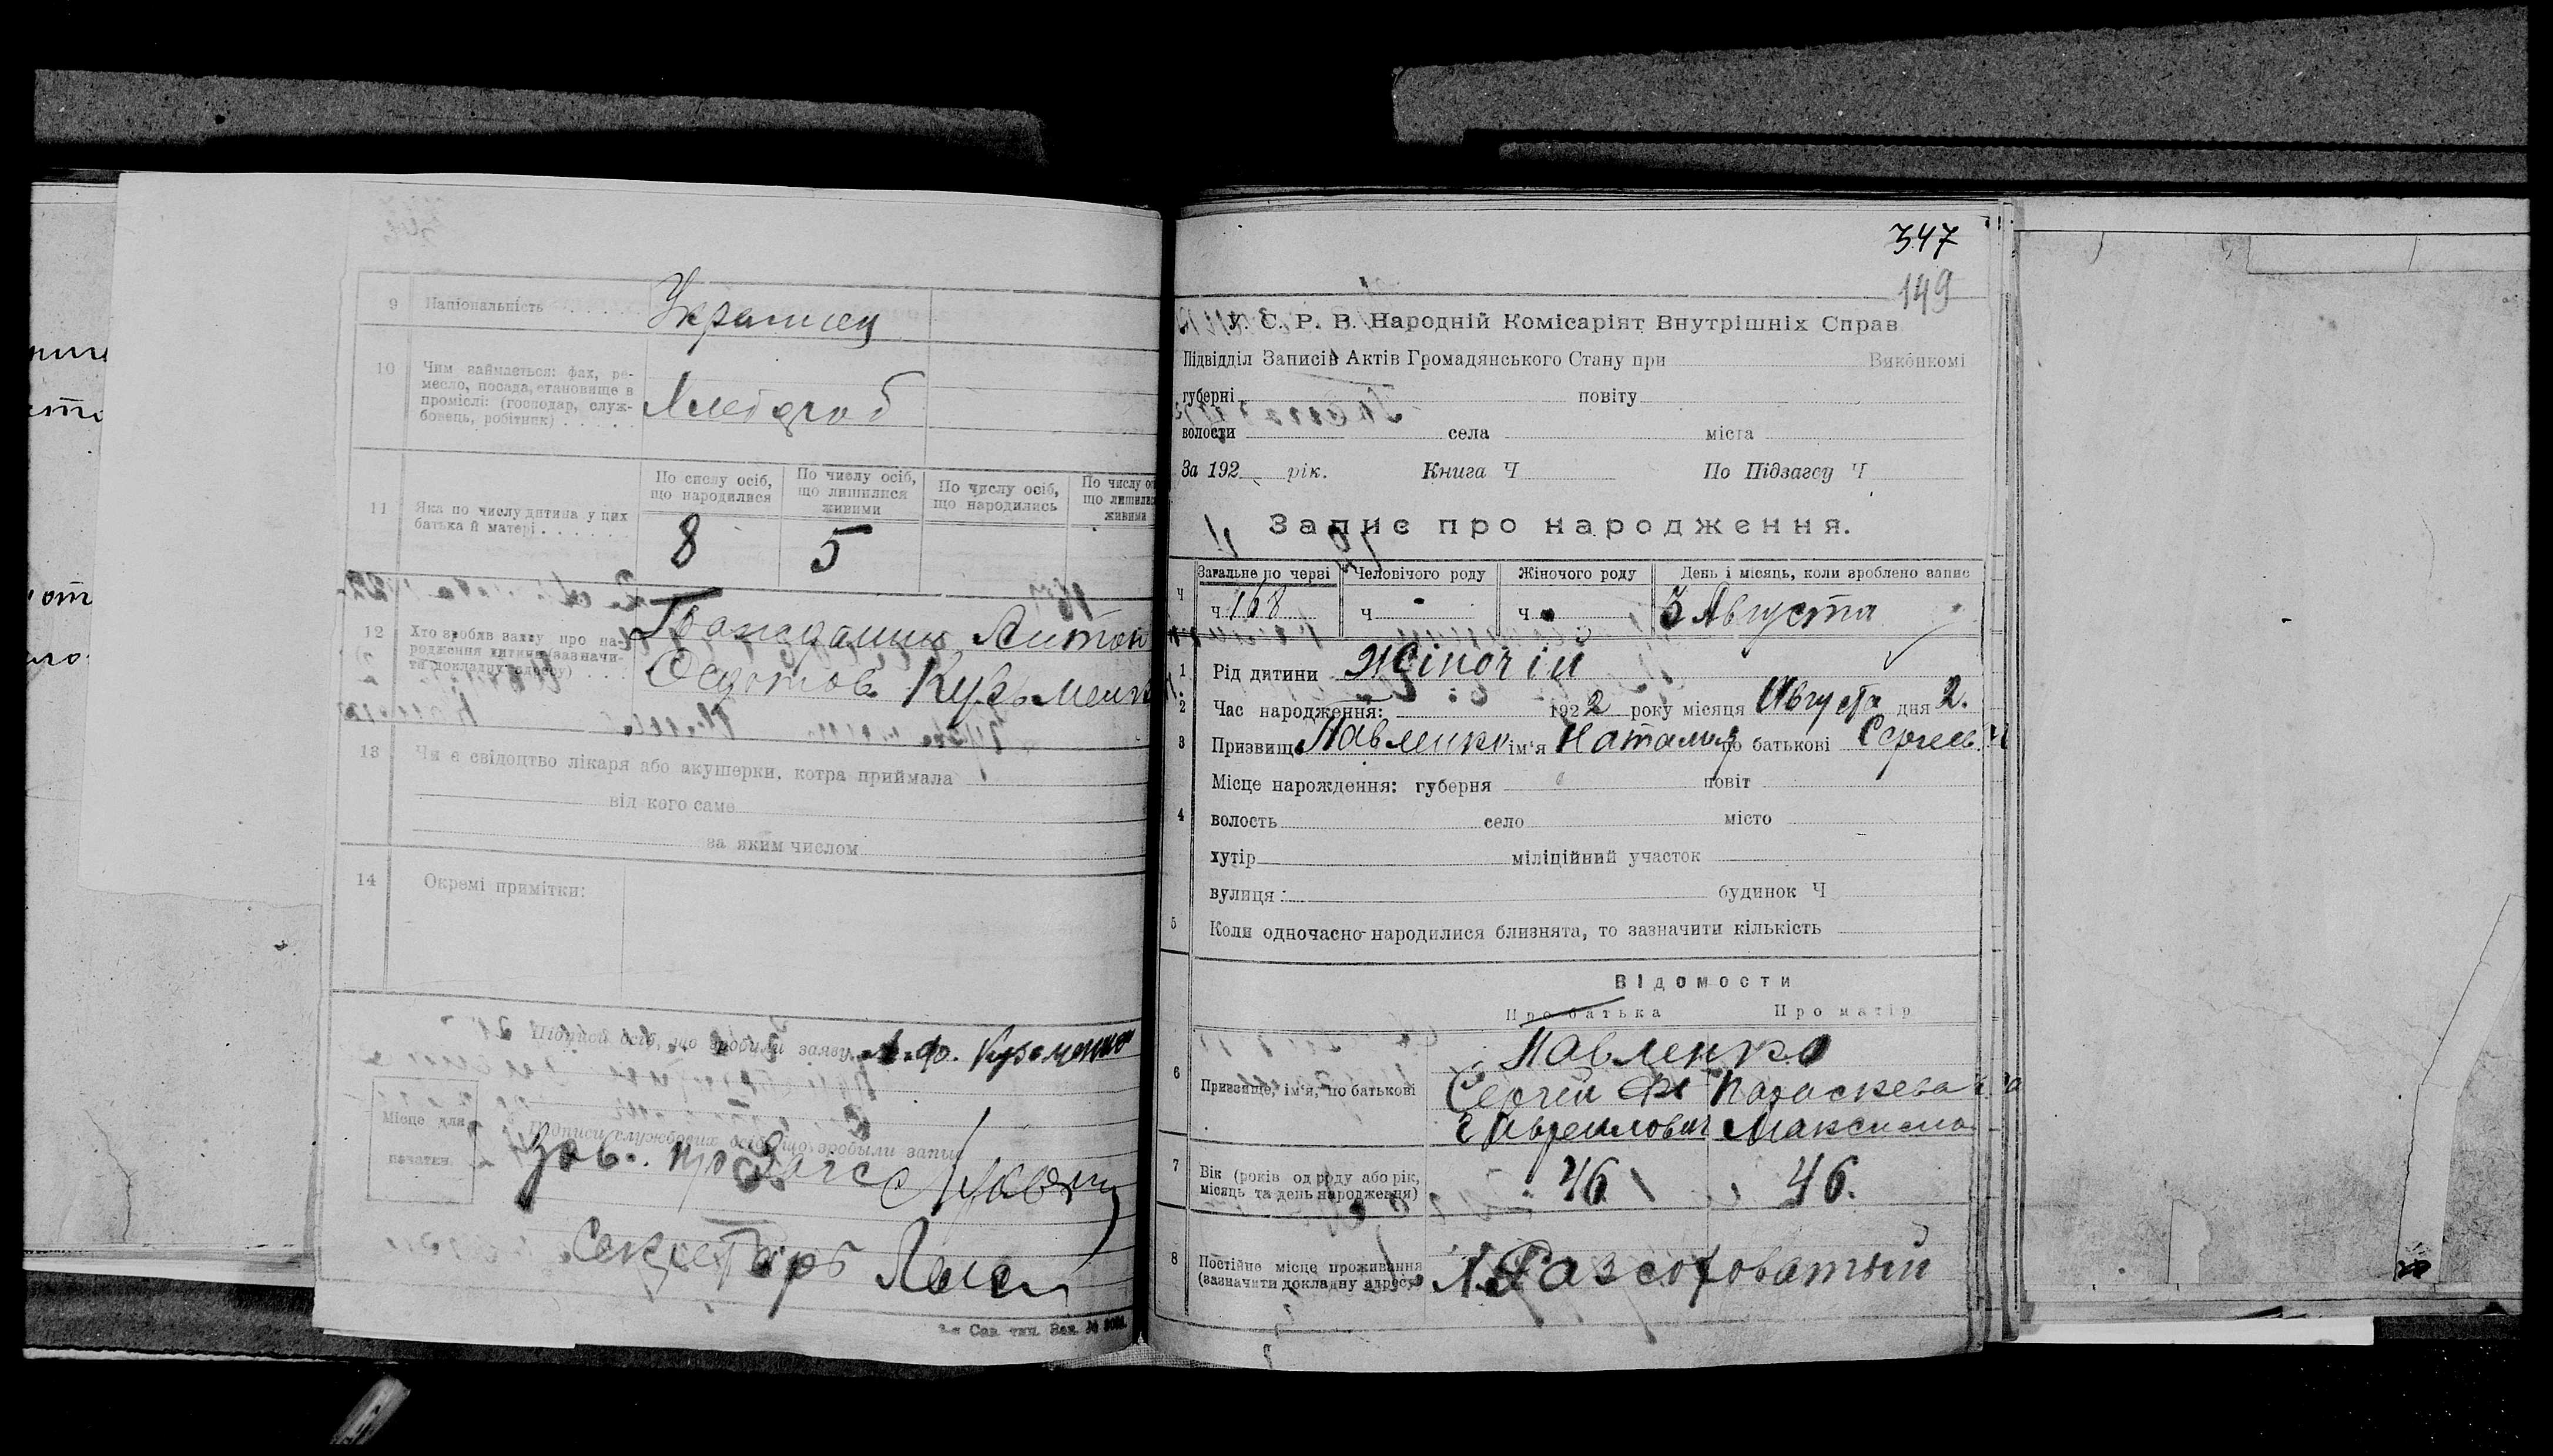 9 Національність Украинец
10 Чим займається: фах, ре-
месло, посада, становище в
проміслі: (господар, служ-
бовець, робітник) Хлебороб
По числу осіб, що народилися
По числу осіб, що лишилися живими
По числу осіб, що народились
11 Яка по числу дитина у цих
батька й матері 8 5
12 Хто зробив заяву про на-
родження дитини (зазначи-
ти докладну адресу)
Гражданин Антон
Федотов Кузьменк
13 Чи є свідоцтво лікаря або акушерки, котра приймала
від кого саме
за яким числом
14 Окремі примітки:
Підписи осіб, що зробили заяву А. Ф. Кузьменко
Місце для
печатки
Підписи службових осіб, що зробыли запис
Зав. про Загс
Секретарь
347
149
У. С. Р. Р. Народній Комісаріят Внутрішніх Справ
Підвідділ Записів Актів Громадянського Стану при Виконкомі
губерні повіту
волости села міста
За 192 рік. Книга Ч По Підзагсу Ч
Запис про народження.
Загальне по черзі Человічого роду Жіночого роду День і місяць, коли зроблено запис
Ч Ч 168 Ч - Ч 3 Августа
1 Рід дитини Жіночій
2 Час народження: 1922 року місяця Августа дня 2.
3 Призвище Павленко ім'я Наталия по батькові Сергеев
Місце нарождення: губерня повіт
4 волость село місто
хутір міліційний участок
вулиця: будинок Ч
5 Коли одночасно народилися близнята, то зазначити кількість
Відомости
Про батька Про матір
6 Призвище, ім'я, по батькові
Павленко
Сергей Параскева
Гаврилович Максимо
7 Вік (років од роду або рік,
місяць та день народження) 46 46.
8 Постійне місце проживання
(зазначити докладну адресу)